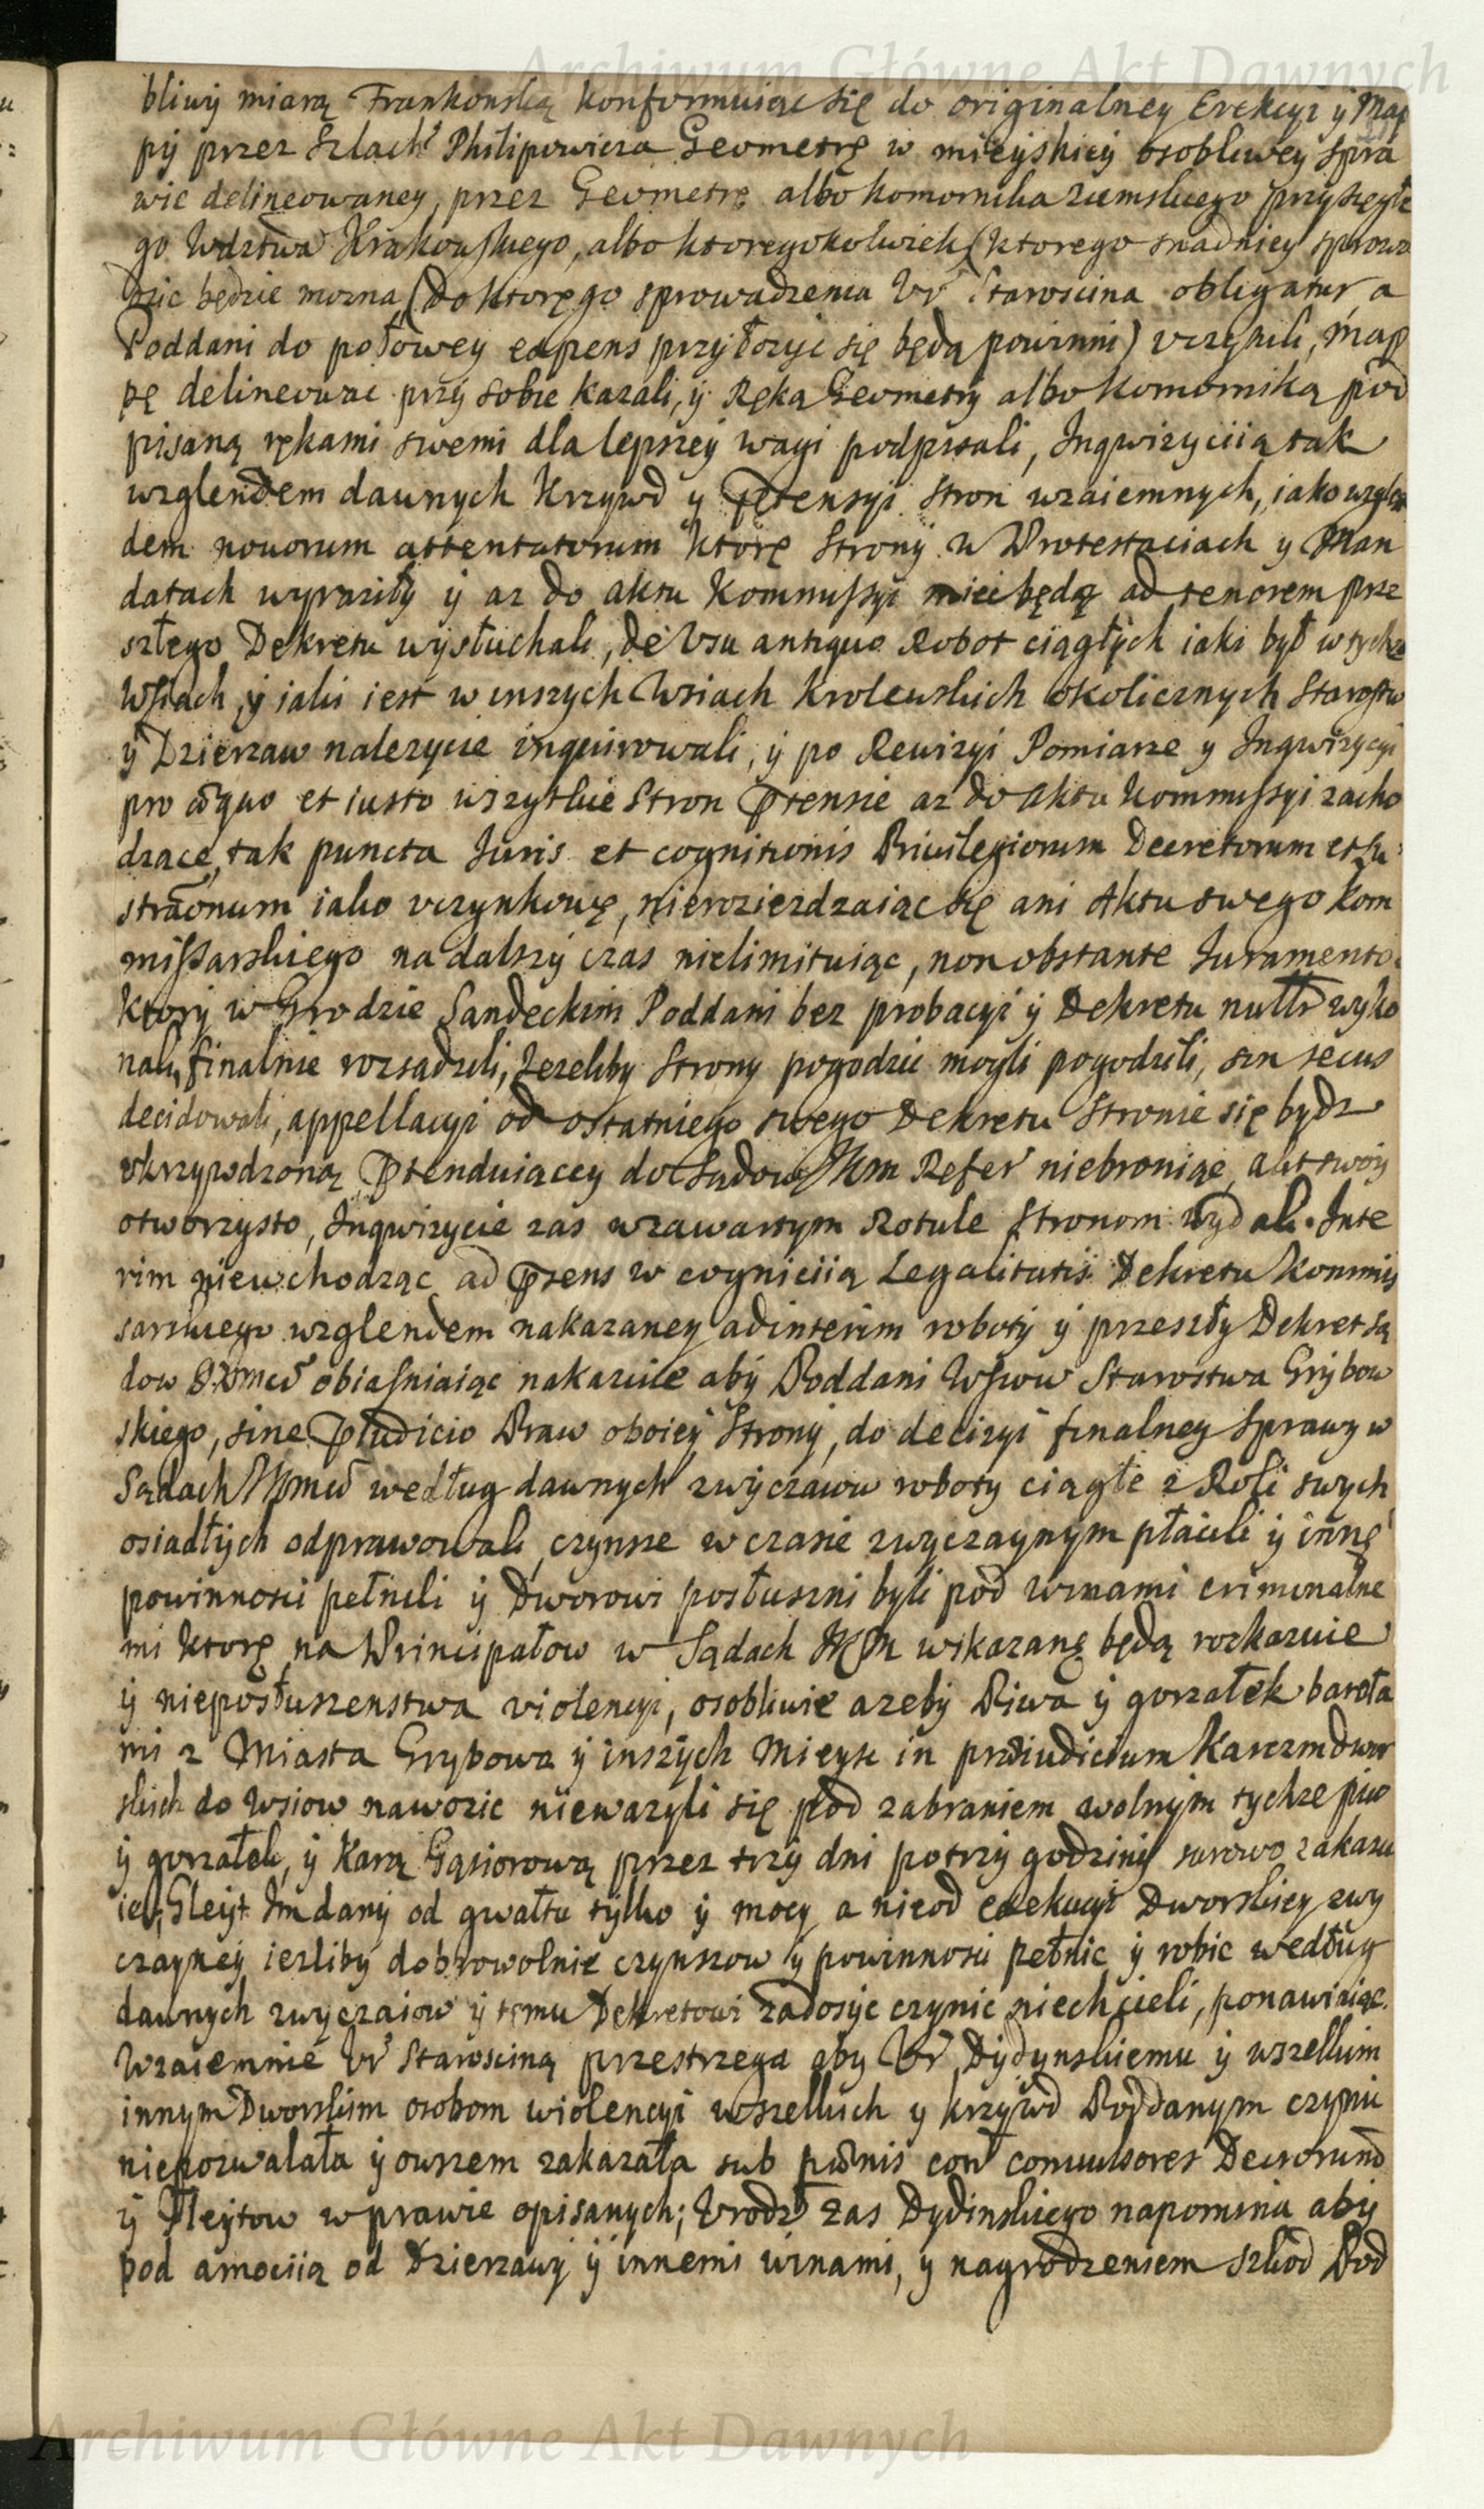 Archiwum Główne Akt Dawnych
bliwy miarą Frankonską konformuiąc się do originalney Erekcyi y Map
py przez Szlach. Philipowicza Geometrę w mieyskiey osobliwey spra
wie delineowaney, przez Geometrę albo komornika ziemskiego przysięgłe
go Wdztwa Krakowskiego, albo ktoregokolwiek (ktorego snadniey sprowa
dzic będzie mozna, (do ktorego sprowadzenia Ur. Starościna obligatur a
Poddani do połowey expens przyłozyc się będą powinni) uczynili, map
pę delineowac przy sobie kazali, y Ręką Geometry albo komornika pod
pisaną rękami swemi dla lepszey wagi podpisali, Inqwizyciią tak
wzglendem dawnych krzywd y Prtensyi stron wzaiemnych, iako wzglen
dem nouorum attentatorum ktore Strony w Protestaciach y Man
datach wyraziły y az do aktu Kommissyi miec będą ad tenorem prze
szłego Dekretu wysłuchali, de Usu antiquo Robot ciągłych iaki był w tychze
Wsiach, y iaki iest w inszych Wsiach krolewskich okolicznych Starostw
y Dzierzaw nalezycie inquirowali, y po Rewizyi Pomiarze y Inqwizycyi
pro æquo et iusto wszytkie Stron Ptensie az do aktu Kommissyi zacho
dzące, tak puncta Juris et cognitionis Priuilegiorum Decretorum et Lu
straonum iako uczynkowe, nieroziezdzaiąc się ani Aktu swego kom
missarskiego na dalszy czas nielimituiąc, non obstante Juramento
ktory w Grodzie Sandeckim Poddani bez probacyi y Dekretu nullr wyko
nali, finalnie rozsądzili, Jezeliby Strony pogodzic mogli pogodzili, sin secus
decidowali, appellacyi od ostatniego swego Dekretu Stronie się bydz
ukrzywdzoną Ptenduiącey do Sądow Refer niebroniąc, akt swoy
otworzysto, Inqwizycie zas w zawartym Rotule stronom wydali. Inte
rim niewchodząc ad Prsens w cogniciią Legalitatis Dekretu kommis
sarskiego wzglendem nakazaney adinterim roboty y przeszły Dekret są
dow obiasniaiąc nakazuie aby Poddani Wsiow Starostwa Grybow
skiego, sine Pjudicio Praw oboiey Strony, do decizyi finalney sprawy w
Sądach według dawnych zwyczaiow roboty ciągłe z Roli swych
osiadłych odprawowali, czynsze w czasie zwyczaynym płacili y inne
powinnosci pełnili y Dworowi posłuszni byli pod winami criminalne
mi ktore na Principałow w Sądach wskazane będą rozkazuie
y nieposłuszenstwa violencyi, osobliwie azeby Piwa y gorzałek baryła
mi z Miasta Grybowa y inszych Mieysc in præiudicium Karczm dwor
skich do Wsiow nawozic niewazyli się pod zabraniem wolnym tychze piw
y gorzałek, y Karą Gąsiorową przez trzy dni po trzy godziny surowo zakazu
ie, Gleyt Im dany od gwałtu tylko y mocy a nie od exekucyi Dworskiey zwy
czayney iezliby dobrowolnie czynszow y powinnosci pełnic y robic według
dawnych zwyczaiow y temu Dekretowi zadosyc czynic niechcieli, ponawiaiąc.
Wzaiemnie Ur Starosciną przestrzega aby Ur. Dydynskiemu y wszelkim
innym Dworskim osobom wiolencyi wszelkich y krzywd Poddanym czynic
niepozwalała y owszem zakazała sub pænis con conuulsores Decrorum
y Gleytow w prawie opisanych; Urodz. zas Dydinskiego napomina aby
pod amociią od Dzierzawy y innemi winami, y nagrodzeniem szkod Pod
Archiwum Główne Akt Dawnych